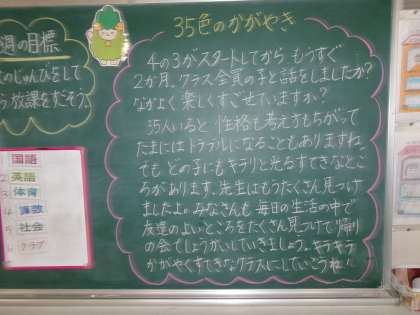 35色のかがやき
4の3がスタートしてから、もうすぐ
2か月。クラス全員の子と話をしましたか?
なかよく楽しくすごせていますか?
35人いると、性格も考え方もちがって
たまにはトラブルになることもありますね。
でも、どの子にもキラリと光るすてきなとこ
ろがあります。先生はもうたくさん見つけ
ましたよ。みなさんも、毎日の生活の中で
友達のよいところをたくさん見つけて、帰り
の会でしょうかいしていきましょう。キラキラ
かがやくすてきなクラスにしていこうね!
週の目標
のじゅんびをして
ら放課をだそう。
国語
2 英語
3 体育
4 算数
5 社会
6 クラブ